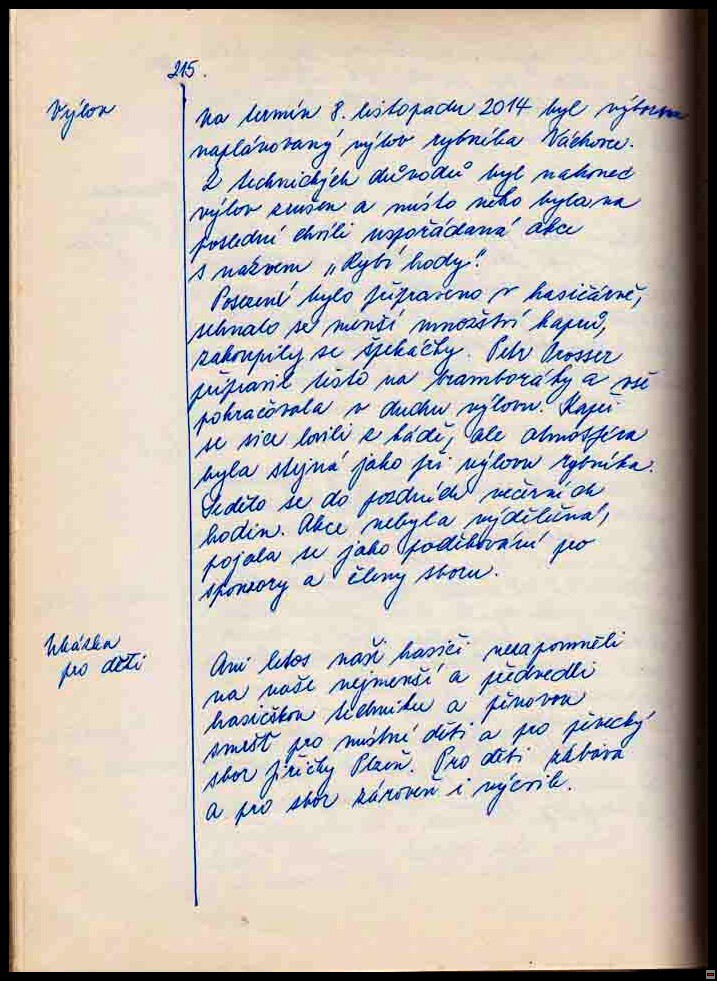 215.
Výlov
Na termín 8. listopadu 2014 byl výborem
naplánovaný výlov rybníka Váchovce.
Z technických důvodů byl nakonec
výlov zrušen a místo něho byla na
poslední chvíli uspořádaná akce
s názvem "Rybí hody".
Posezení bylo připraveno v hasičárně,
sehnalo se menší množství kaprů,
zakoupily se špekáčky. Petr Prosser
připravil těsto na bramboráky a vše
pokračovala v duchu výlovu. Kapři
se sice lovili z kádě, ale atmosféra
byla stejná jako při výlovu rybníka.
Sedělo se do pozdních večerních
hodin. Akce nebyla výdělečná,
pojala se jako poděkování pro
sponzory a členy sboru.
Ukázka
pro děti
Ani letos naši hasiči nezapomněli
na naše nejmenší a předvedli
hasičskou techniku a pěnovou
smršť pro místní děti a pro pěvecký
sbor Jiřičky Plzeň. Pro děti zábava
a pro sbor zároveň i výcvik.